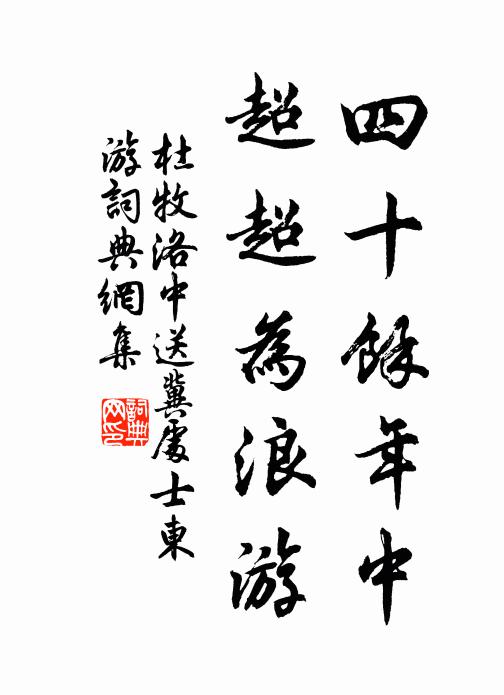 四十餘年中
超超為浪游
杜牧洛中送冀處士東
游詞典網集
詞典網印